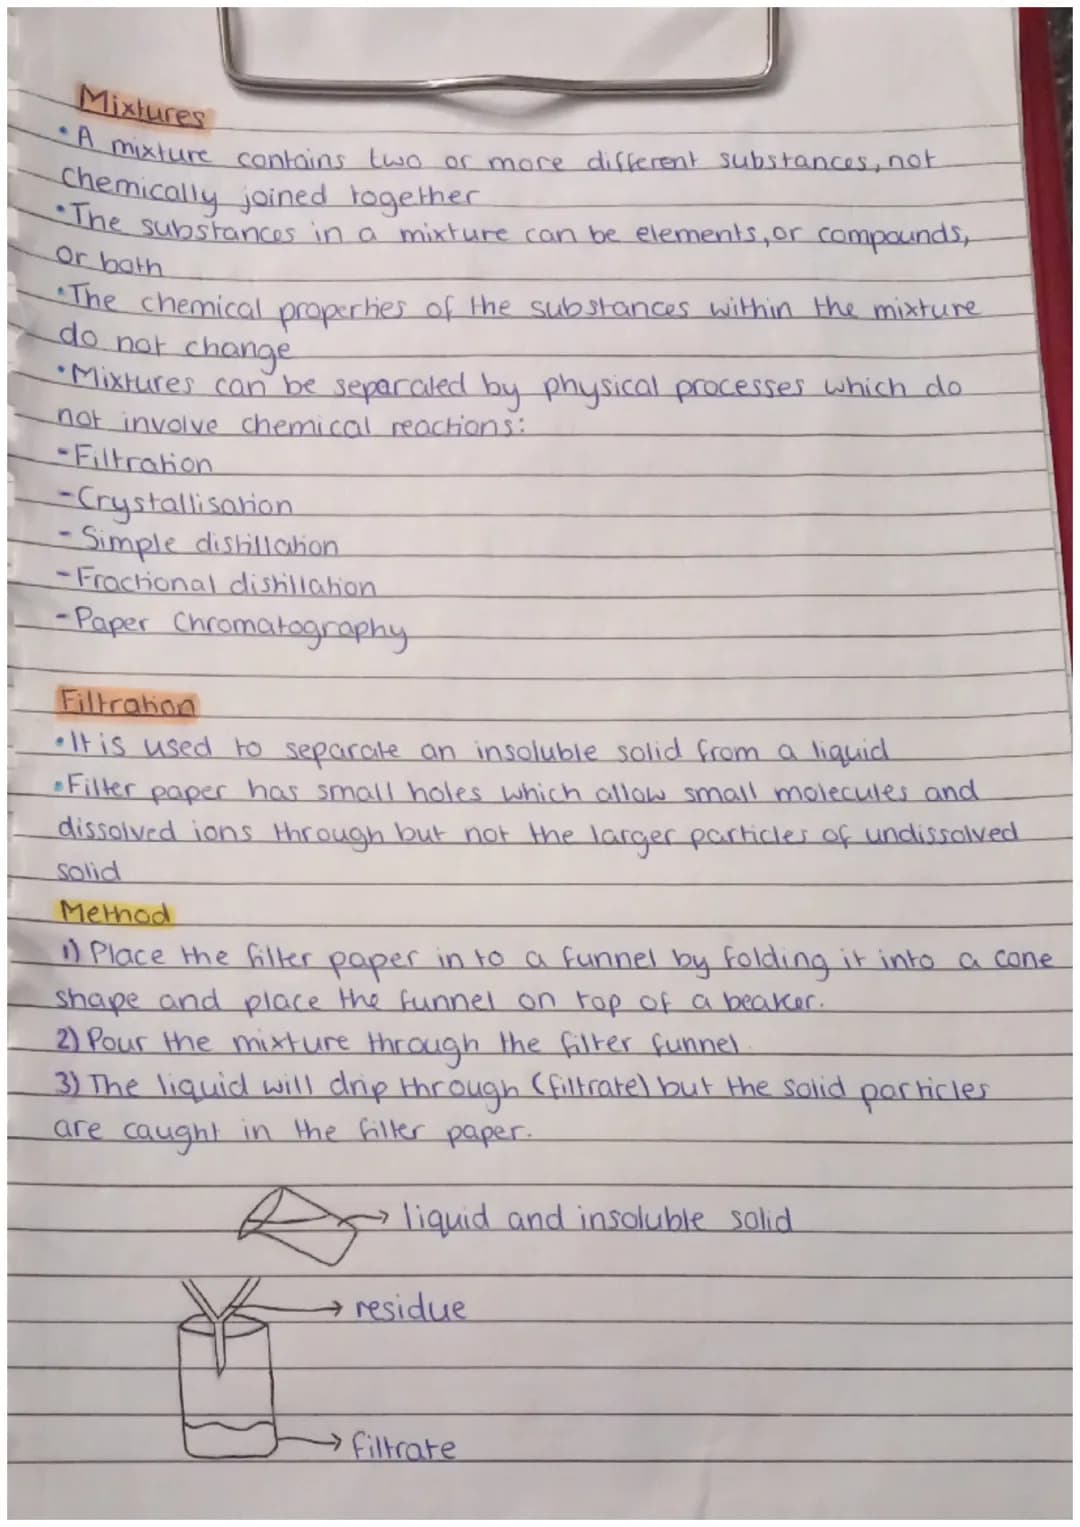 Mixtures
• A mixture contains two or more different substances, not
chemically joined together
• The substances in a mixture can be elements, or compounds,
or both
• The chemical properties of the substances within the mixture
do not change
• Mixtures can be separated by physical processes which do
not involve chemical reactions:
- Filtration
- Crystallisation
- Simple distillation
- Fractional distillation
- Paper Chromatography
Filtration
• It is used to separate an insoluble solid from a liquid
• Filter paper has small holes which allow small molecules and
dissolved ions through but not the larger particles of undissolved
solid
Method
1) Place the filter paper in to a funnel by folding it into a cone
shape and place the funnel on top of a beaker.
2) Pour the mixture through the filter funnel.
3) The liquid will drip through (filtrate) but the solid particles
are caught in the filter paper.
liquid and insoluble solid
residue
filtrate